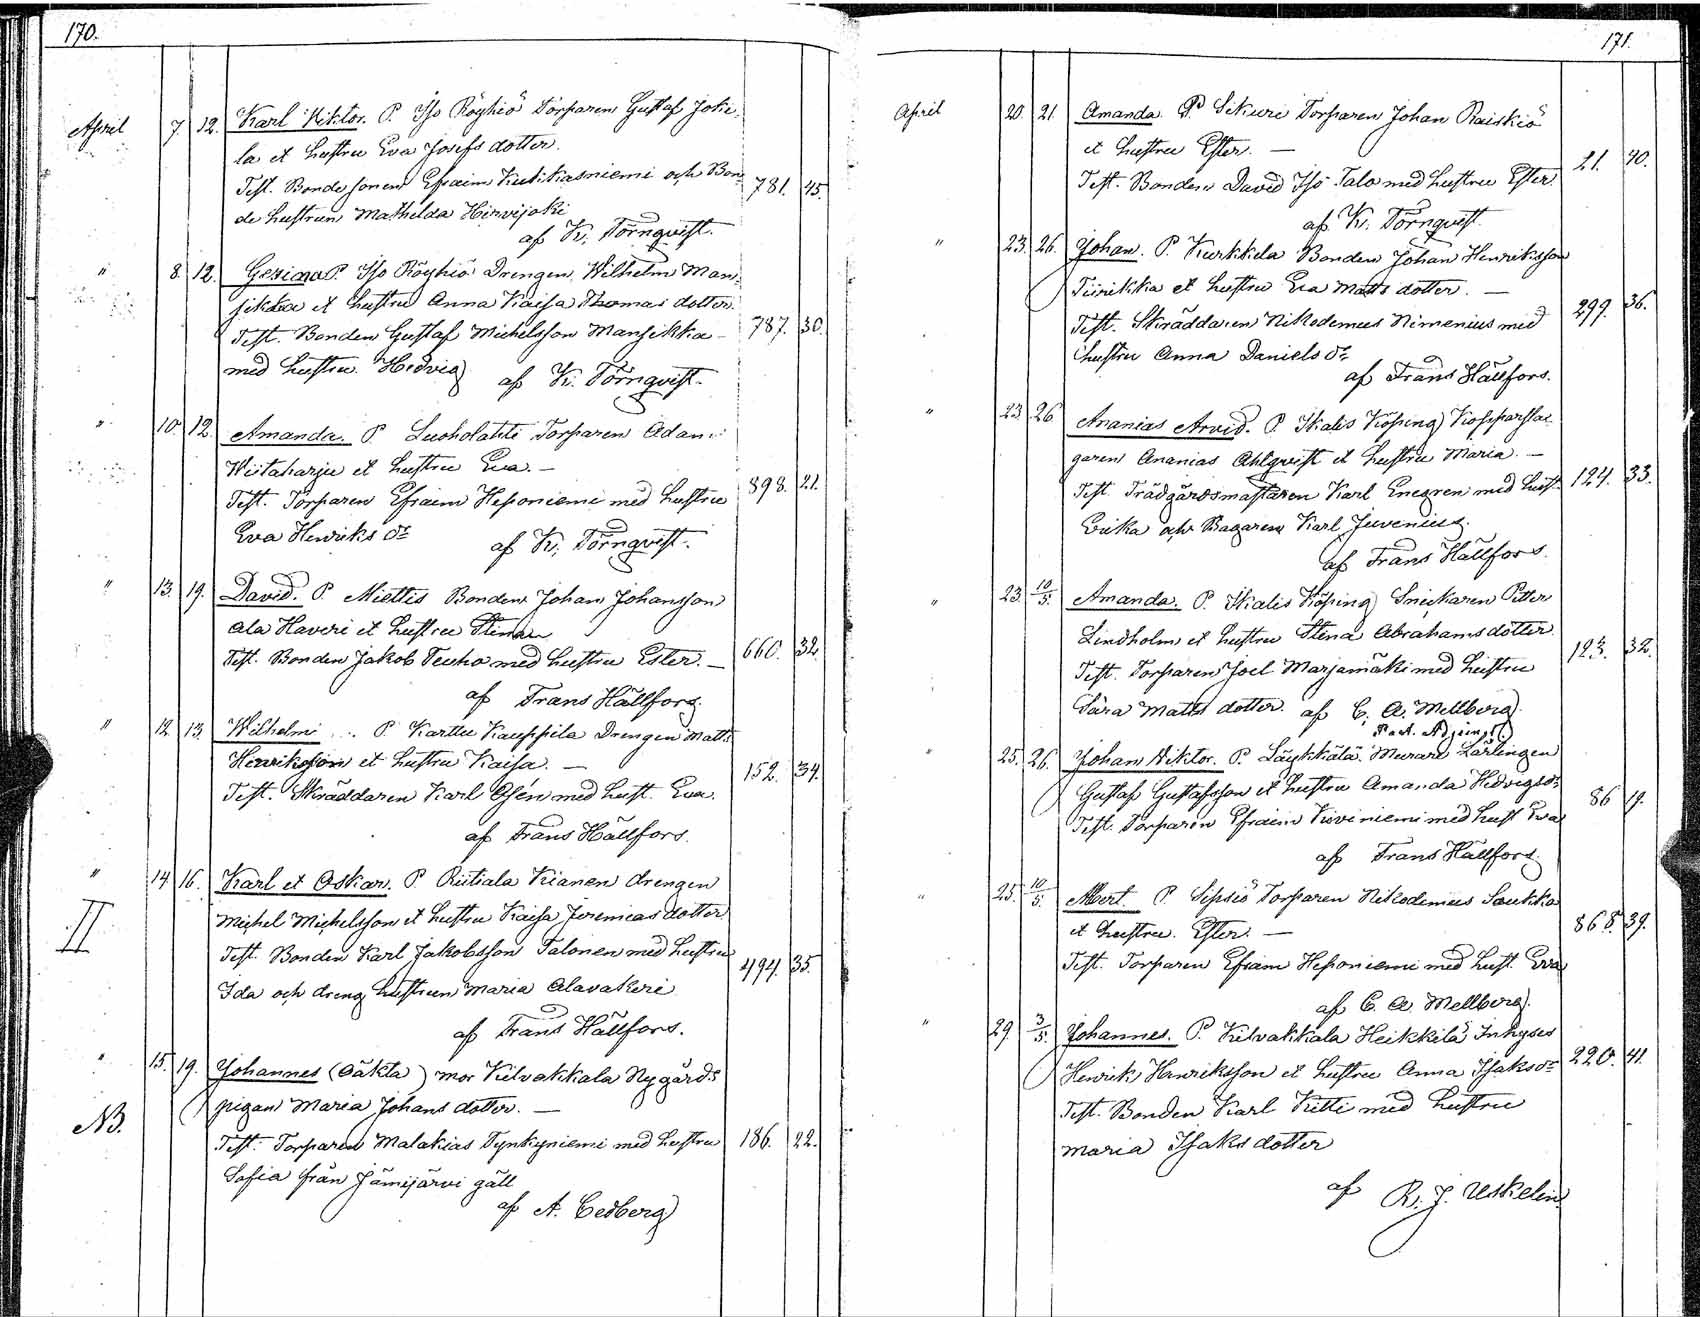 170.
April 7. 12. Karl Viktor. P. Iso Röyhiö Torparen Gustaf Joki-
la et hustru Eva Josefs dotter.
Test. Bonde sonen Efraim Kukkasniemi och Bon- 781. 45.
de hustrun Mathilda Hirvijoki
af K. Törnqvist.
" 8. 12. Gerina P. Iso Röyhiö Drengen Wilhelm Man-
sikka et hustru Anna Kaisa Thomas dotter.
Test. Bonden Gustaf Michelsson Mansikka 787. 30.
med hustru Hedvig
af K. Törnqvist.
" 10. 12. Amanda. P. Luoholahti Torparen Adam
Wiitaharju et hustru Eva. —
Test. Torparen Efraim Heponiemi med hustru 898. 21.
Eva Henriks dr
af K. Törnqvist.
" 13. 19. David. P. Miettis Bonden Johan Johansson
Ala Haveri et hustru Stina
Test. Bonden Jakob Teuho med hustru Ester. — 660. 32.
af Frans Hällfors.
" 12. 13. Wilhelmi P. Karttu Kauppila Drengen Matts
Henriksson et hustru Kaisa. —
Test. Skräddaren Karl Osén med hust. Eva. 152. 34.
af Frans Hällfors.
" 14. 16. Karl et Oskar. P. Riitiala Kianen drengen
II Michel Michelsson et hustru Kaisa Jeremias dotter
Test. Bonden Karl Jakobsson Talonen med hustru 494. 35.
Ida och dreng hustrun Maria Alavakeri
af Frans Hällfors.
" 15. 19. Johannes (Oäkta) mor Kilvakkala Nygårds
NB. pigan Maria Johans dotter. —
Test. Torparen Malakias Tynkyniemi med hustru 186. 22.
Sofia från Jämijärvi gäll
af A. Cedberg
171.
April 20. 21. Amanda. P. Sikuri Torparen Johan Raiskiö
et hustru Ester. —
Test. Bonden David Iso Talo med hustru Ester. 21. 40.
af K. Törnqvist.
" 23. 26. Johan. P. Kurkkela Bonden Johan Henriksson
Tiirikka et hustru Eva Matts dotter. —
Test. Skräddaren Nikodemus Nimenius med 299. 36.
hustru Anna Daniels dr
af Frans Hällfors.
" 23. 26. Ananias Arvid. P. Ikalis Köping Kopparsla-
garen Ananias Ahlqvist et hustru Maria. —
Test. Trädgårdsmästaren Karl Enegren med hust. 124. 33.
Erika och Bagaren Karl Juvenius.
af Frans Hällfors.
" 23. 10/5. Amanda. P. Ikalis Köping Snickaren Petter
Lindholm et hustru Stina Abrahams dotter
Test. Torparen Joel Marjamäki med hustru 123. 32.
Sara Matts dotter. af C. A. Mellberg.
Past. Adjunct.
" 25. 26. Johan Viktor. P. Läykkälä Murare Lärlingen
Gustaf Gustafsson et hustru Amanda Hedvigsdr
Test. Torparen Efraim Viiviniemi med hust Eva 86 19.
af Frans Hällfors.
" 25. 10/5. Albert. P. Sipsiö Torparen Nikodemus Saukko
et hustru. Ester. — 868. 39.
Test. Torparen Efraim Heponiemi med hust. Eva
af C. A. Mellberg.
" 29. 3/5. Johannes. P. Kilvakkala Heikkilä Inhyses
Henrik Henriksson et hustru Anna Isaksdr 220. 41.
Test. Bonden Karl Kitti med hustru
Maria Isaks dotter
af R. J. Uskelin.